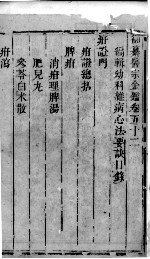 御纂醫宗金鑑卷五十二
編輯幼科雜病心法要訣目錄
疳證門
疳證總括
脾疳
消疳理脾湯
肥兒丸
參苓白朮散
疳瀉